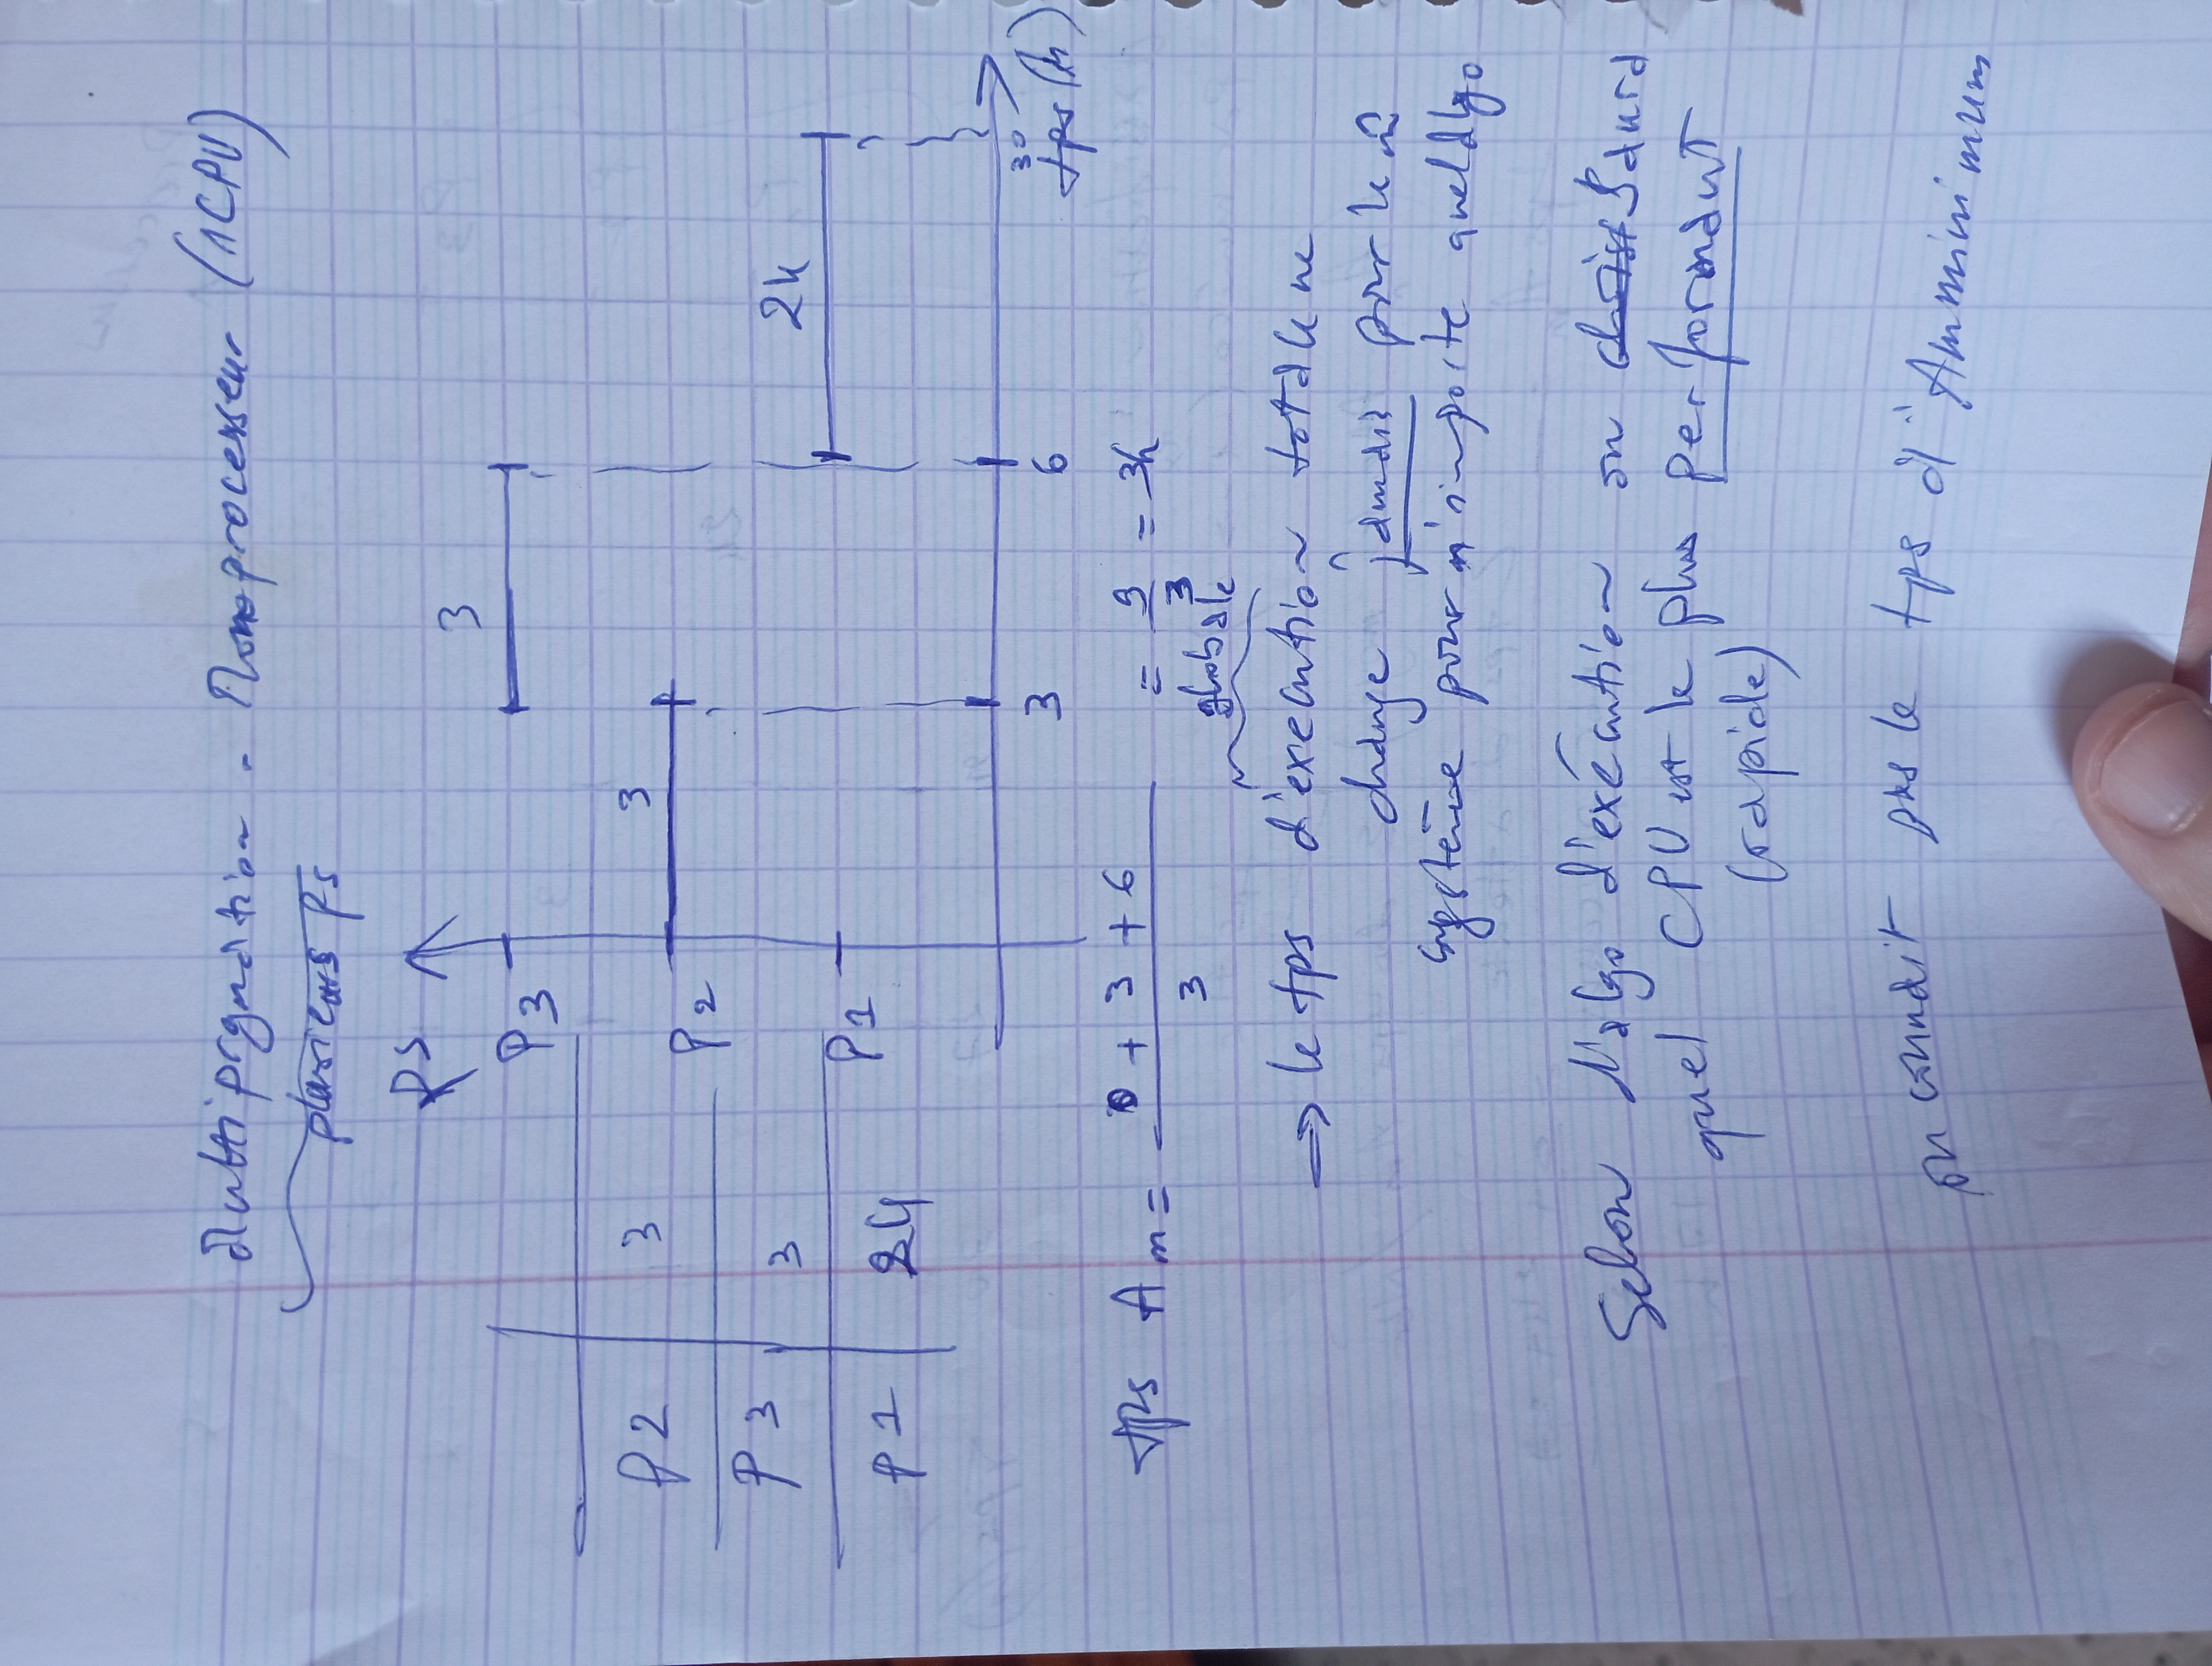 Multiprgmation - Monoprocesseur (1CPU)
plusieurs ps
ps
3
P3
P2 3
3
P2
P3 3
24
P1
P1 24
3 6 30
tps (h)
tps Am = 0 + 3 + 6 / 3 = 9 / 3 = 3h
globale
→ le tps d'execution totale ne
change jamais pour le m̂
système pour n'importe quel algo
Selon l'algo d'exécution on saura
quel CPU est le plus performant
(rapide)
on connait pas le tps d'Amminimum